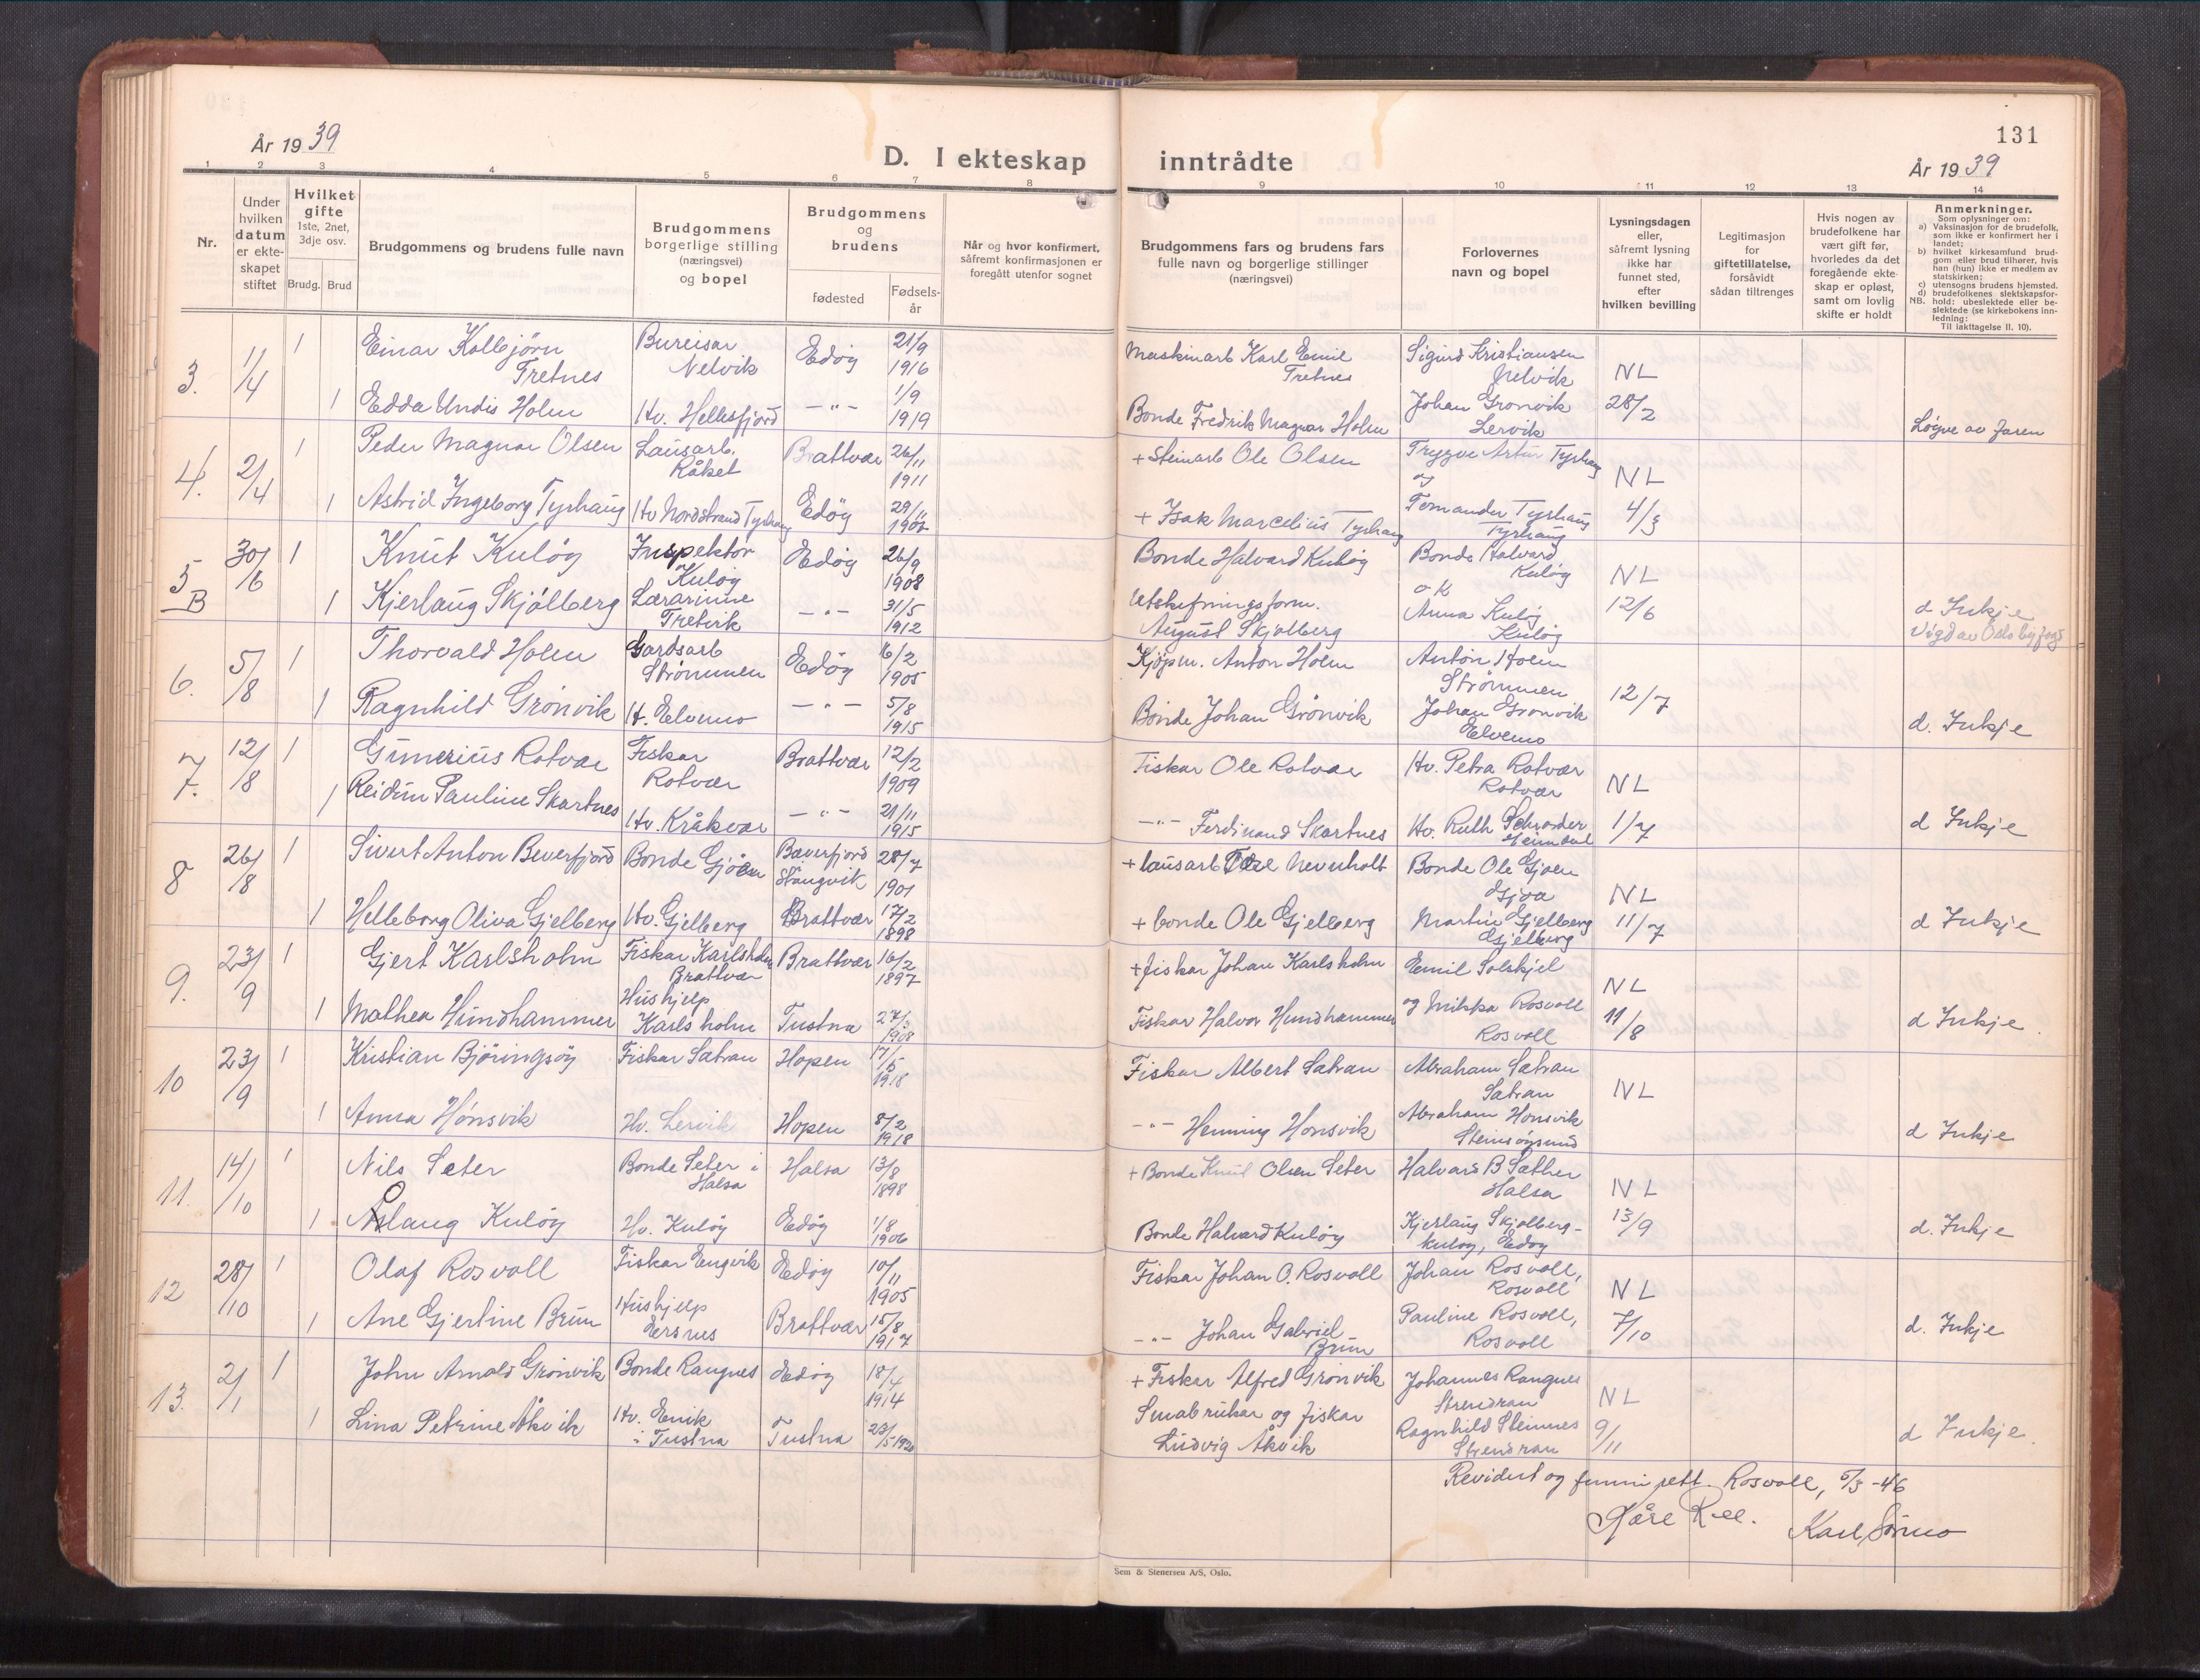 131
År 1939
D. I ekteskap inntrådte
År 1939
1 2 3 4 5 6 7 8 9 10 11 12 13 14
Nr.
Under
hvilken
datum
er ekte-
skapet
stiftet
Hvilket
gifte
1ste, 2net,
3dje osv.
Brudg. Brud
Brudgommens og brudens fulle navn
Brudgommens
borgerlige stilling
(næringsvei)
og bopel
Brudgommens
og
brudens
fødested
Fødsels-
år
Når og hvor konfirmert,
såfremt konfirmasjonen er
foregått utenfor sognet
Brudgommens fars og brudens fars
fulle navn og borgerlige stillinger
(næringsvei)
Forlovernes
navn og bopel
Lysningsdagen
eller,
såfremt lysning
ikke har
funnet sted,
efter
hvilken bevilling
Legitimasjon
for
giftetillatelse,
forsåvidt
sådan tiltrenges
Hvis nogen av
brudefolkene har
vært gift før,
hvorledes da det
foregående ekte-
skap er opløst,
samt om lovlig
skifte er holdt
Anmerkninger.
Som oplysninger om:
a) Vaksinasjon for de brudefolk,
som ikke er konfirmert her i
landet;
b) hvilket kirkesamfund brud-
gom eller brud tilhører, hvis
han (hun) ikke er medlem av
statskirken;
c) utensogns brudens hjemsted.
d) brudefolkenes slektskapsfor-
NB. hold: ubeslektede eller be-
slektede (se kirkebokens inn-
ledning:
Til iakttagelse II. 10).
3. 1/4 1 Einar Kolbjörn Tretnes Bureisar Nelvik Edöy 21/9 1916 Maskinarb Karl Emil Tretnes Sigurd Kristiansen Nelvik NL
1 Edda Undis Holm Hv. Hellesfjord -"- 1/9 1919 Bonde Fredrik Magnar Holm Johan Gronvik Lervik 28/2 Løyve av Faren
4. 2/4 1 Peder Magnar Olsen Lausarb. Råket Brattvær 26/11 1911 + Steinarb Ole Olsen Trygve Artur Tyrhaug og NL
1 Astrid Ingeborg Tyrhaug Hv Nordstrand Tyrhaug Edöy 29/11 + Isak Marcelius Tyrhaug Fernander Tyrhaug Tyrhaug 4/3
5 B 30/6 1 Knut Kulöy Inspektör Kulöy Edöy 26/9 1908 Bonde Halvard Kulöy Bonde Halvard Kulöy NL
1 Kjerlaug Skjölberg Lærarinne Tretvik -"- 31/5 1912 Utskiftningsform. August Skjölberg og Anna Kulöy Kulöy 12/6 d Inkje
Vigd av Oslo byfogd
6. 5/8 1 Thorvald Holm Gardsarb Strömmen Edöy 16/2 1905 Kjöpm. Anton Holm Anton Holm Strömmen 12/7
1 Ragnhild Grönvik H. Elvemo -"- 5/8 1915 Bonde Johan Grönvik Johan Grönvik Elvemo d. Inkje
7. 12/8 1 Gunerius Rotvær Fiskar Rotvær Brattvær 12/2 1909 Fiskar Ole Rotvær Hv. Petra Rotvær Rotvær NL
1 Reidun Pauline Skartnes Hv. Kråkvær -"- 21/11 1915 -"- Ferdinand Skartnes Hv. Ruth Schrøder 1/7 d Inkje
8 26/8 1 Sivert Anton Beverfjord Bonde Gjöen Bæverfjord Stangvik 28/7 1901 + lausarb Tore Neverholt Bonde Ole Gjöen Gjöa NL
1 Helleborg Oliva Gjelberg Hv. Gjelberg Brattvær 17/2 1898 + bonde Ole Gjelberg Martin Gjelberg Gjelberg 11/7 d Inkje
9. 23/9 1 Gjert Karlsholm Fiskar Karlsholm Brattvær Brattvær 16/2 1897 + fiskar Johan Karlsholm Emil Solskjel NL
1 Mathea Hundhammer Hushjelp Karlsholm Tustna 1908 Fiskar Halvor Hundhammer og Milkka Rosvoll Rosvoll 11/8 d Inkje.
10 23/9 1 Kristian Björingsöy Fiskar Sætran Hopen 17/5 1918 Fiskar Albert Sætran Abraham Sætran Sætran NL
1 Anna Hönsvik Hv. Lervik Hopen 8/2 1918 -"- Henning Hönsvik Abraham Hönsvik Steinsöysund d Inkje
11. 14/10 1 Nils Seter Bonde Seter i Halsa Halsa 13/8 1898 + Bonde Knut Olsen Seter Halvard B Sæther Halsa NL
1 Åslaug Kulöy Hv. Kulöy Edöy 1/8 1906 Bonde Halvard Kulöy Kjerlaug Skjölberg-Kulöy, Edöy 13/9 d. Inkje
12 28/10 1 Olaf Rosvoll Fiskar Engvik Edöy 10/11 1905 Fiskar Johan O. Rosvoll Johan Rosvoll, Rosvoll NL
1 Ane Gjertine Brun Hushjelp Ersnes Brattvær 15/8 1917 -"- Johan Gabriel Brun Pauline Rosvoll, Rosvoll 7/10 d. Inkje
13. 2/1 1 John Arnold Grönvik Bonde Rangnes Edöy 18/4 1914 + Fiskar Alfred Grönvik Johannes Rangnes NL
1 Lina Petrine Åkvik Hv. Envik i Tustna Tustna 23/5 1920 Småbrukar og fiskar Ludvig Åkvik Ragnhild Steinnes 9/11 d Inkje.
Revidert og funni rett. Rosvoll, 5/3 -46
Kåre R-ll. Karl Sørmo
Sem & Stenersen A/S, Oslo.